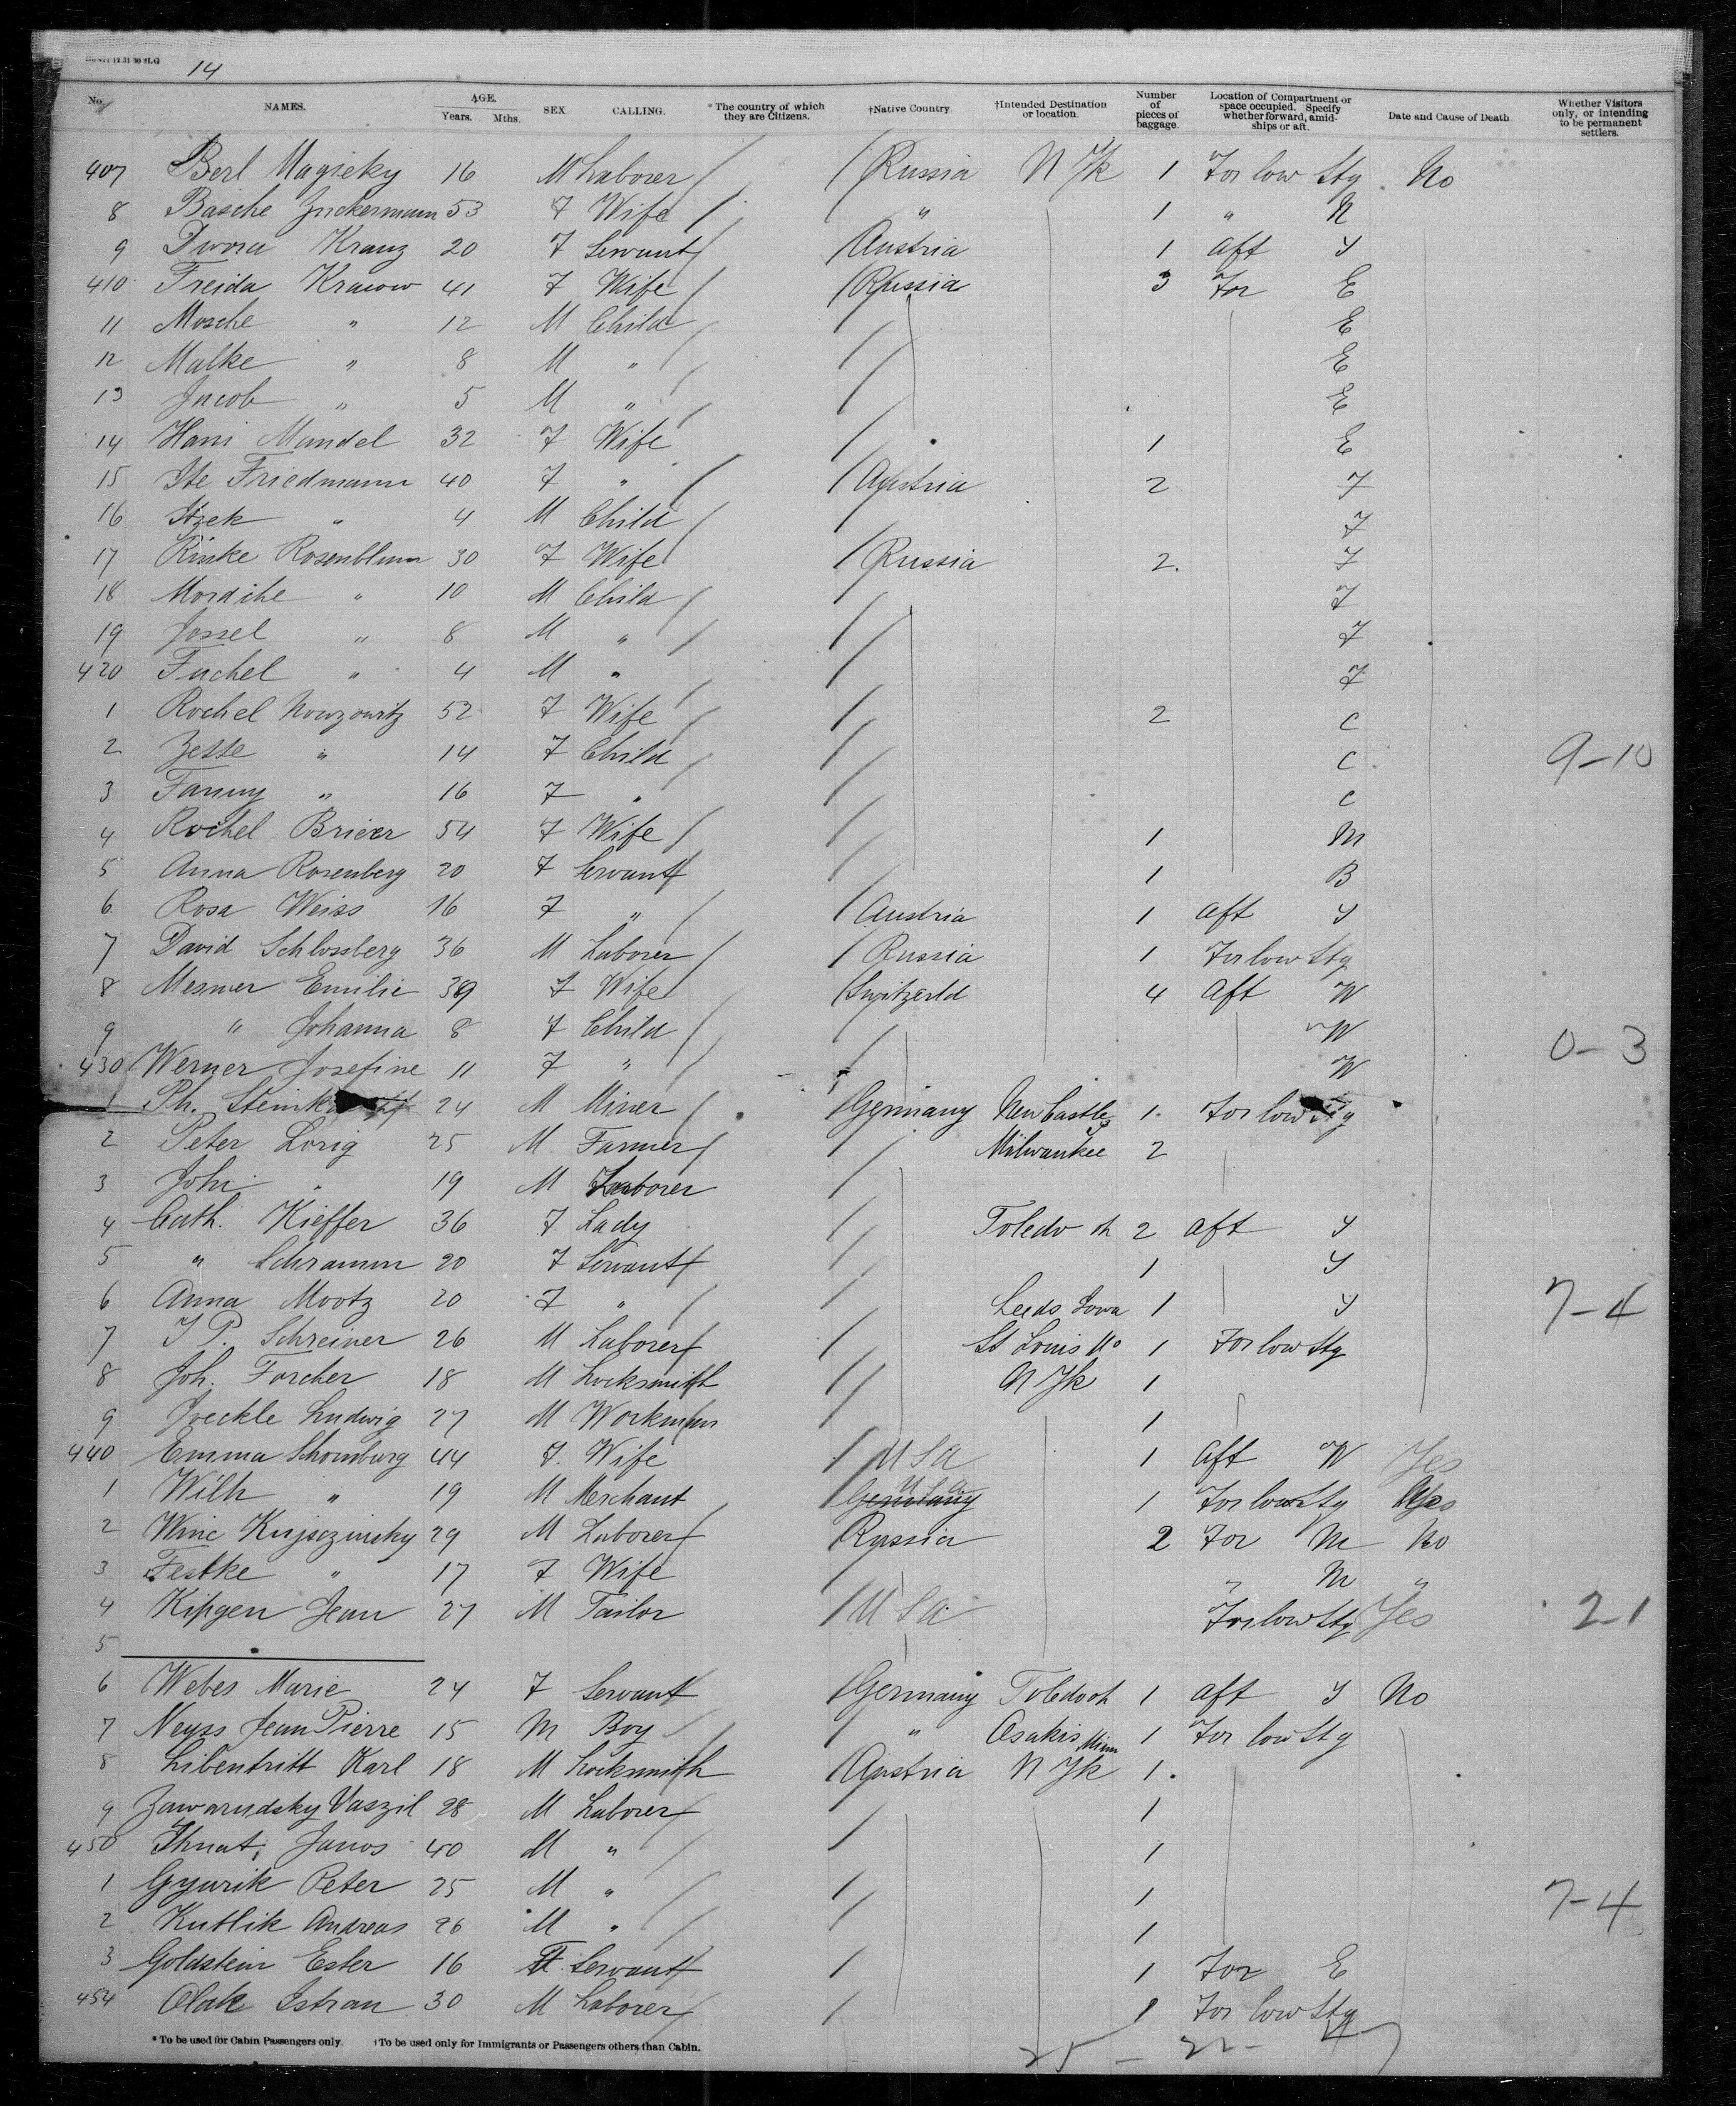 14
No. NAMES. AGE. Years. Mths. SEX. CALLING. *The country of which they are Citizens. †Native Country †Intended Destination or location. Number of pieces of baggage. Location of Compartment or space occupied. Specify whether forward, amidships or aft. Date and Cause of Death Whether Visitors only, or intending to be permanent settlers.
407 Berl Magicky 16 M Laborer / / Russia N Yk 1 For low Stg. No
8 Basche Zuckermann 53 F Wife / " 1 " N
9 Dwora Kranz 20 F Servant / / Austria 1 aft Y
410 Freida Kracow 41 F Wife / / Russia 3 For E
11 Mosche " 12 M Child / / E
12 Malke " 8 M " / / E
13 Jacob " 5 M " / / E
14 Hani Mandel 32 F Wife / / 1 E
15 Ite Friedmann 40 F " / / Austria 2 F
16 Itzek " 4 M Child / F
17 Rinke Rosenblum 30 F Wife / / Russia 2. F
18 Mordche " 10 M Child / / F
19 Jossel " 8 M " / / F
420 Fuchel " 4 M " / / F
1 Rochel Nowzowitz 52 F Wife / / 2 C
2 Zesse " 14 F Child / / C 9-10
3 Fanny " 16 F " / C
4 Rochel Brierr 54 F Wife / / 1 M
5 Anna Rosenberg 20 F Servant / / 1 B
6 Rosa Weiss 16 F " / / Austria 1 aft Y
7 David Schlossberg 36 M Laborer / / Russia 1 For low Stg
8 Mesmer Emilie 39 F Wife / / Switzerld 4 Aft W
9 " Johanna 8 F Child / / W 0-3
430 Werner Josefine 11 F " / / W
1 Ph. 24 M Miner / / Germany New Castle 1. For low Stg
2 Peter Lorig 25 M Farmer / / Milwaukee 2
3 Joh " 19 M Laborer /
4 Cath. Kieffer 36 F Lady / Toledo oh 2 aft Y
5 " Schramm 20 F Servant / / 1 Y
6 Anna Mootz 20 F " / / Leeds Iowa 1 Y 7-4
7 J P. Schreiner 26 M Laborer / / St Louis Mo 1 For low Stg
8 Joh. Forcher 18 M Locksmith / N Yk 1
9 Joeckle Ludwig 27 M Workman / 1
440 Emma Schomburg 44 F. Wife / U S a 1 aft W Yes
1 Wilh " 19 M Merchant / Germany U S a 1 For low Stg Yes
2 Winc Kujsczinsky 29 M Laborer / / Russia 2 For M No
3 Festke " 17 F Wife / " M "
4 Kipgen Jean 27 M Tailor / U S a For low Stg Yes 2-1
5
6 Webes Marie 24 F Servant / / Germany Toledo oh 1 aft Y No
7 Neyss Jean Pierre 15 M Boy / / " Osakis Minn 1 For low Stg
8 Libentritt Karl 18 M Locksmith / Austria N Yk 1.
9 Zawarudsky Vaszil 28 M Laborer / / 1
450 Ihnat, Janos 40 M " / / 1
1 Gyurik Peter 25 M " / / 1 7-4
2 Kutlik Andreas 26 M " / / 1
3 Goldstein Ester 16 F. Servant / / 1 For E
454 Olak Istvan 30 M Laborer / / 1 For low Stg
* To be used for Cabin Passengers only. †To be used only for Immigrants or Passengers others than Cabin.
25 - 22 - 47